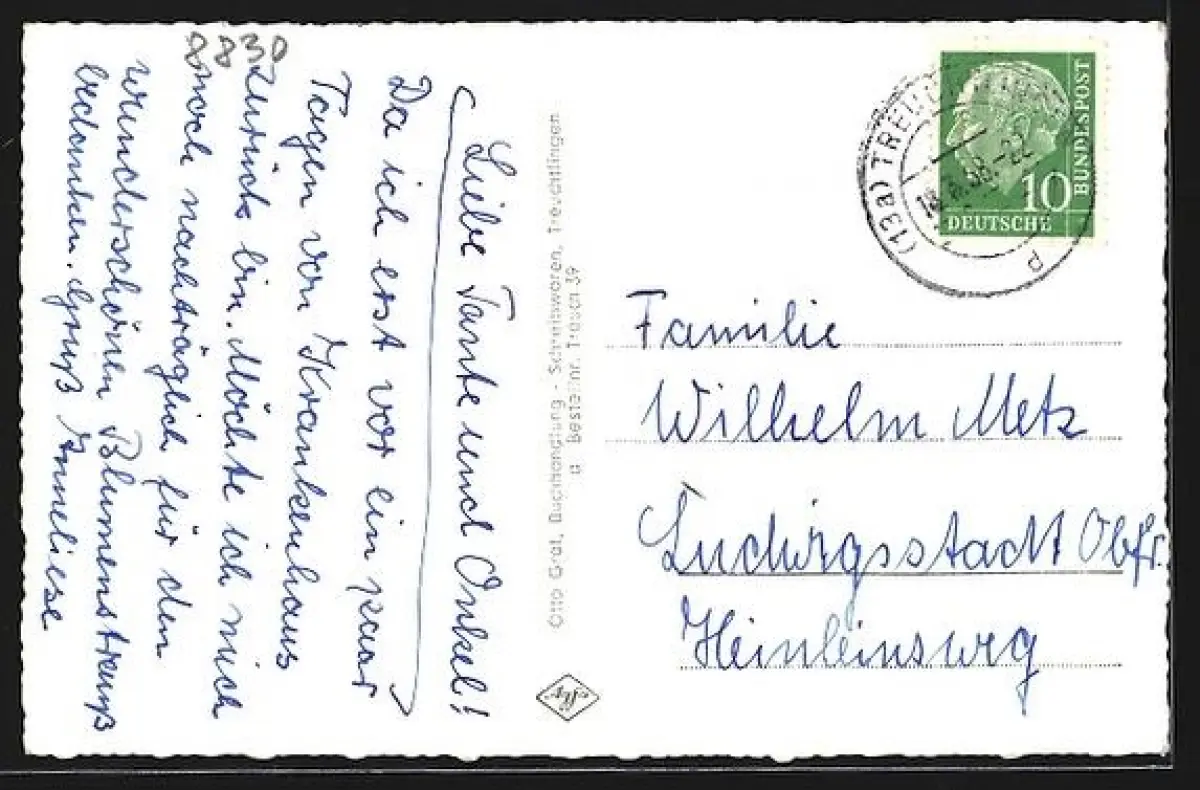 8830
Liebe Tante und Onkel!
Da ich erst vor ein paar
Tagen von Krankenhaus
zurück bin. Möchte ich mich
noch nachträglich für den
wunderschönen Blumenstrauß
bedanken. Gruß Anneliese
Otto Graf, Buchhandlung - Schreibwaren, Treuchtlingen
Bestellnr. Treuch 39
(13a) TREUCHTLINGEN
-22
P
10
DEUTSCHE
BUNDESPOST
Familie
Wilhelm Metz
Ludwigsstadt Obfr.
Heinleinsweg